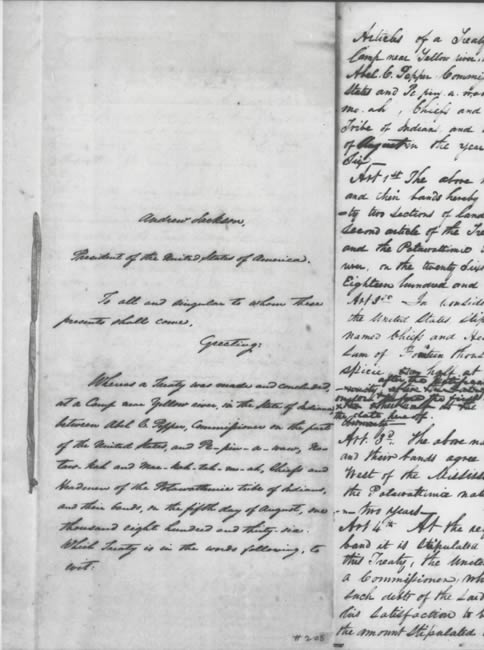 Andrew Jackson,
President of the United States of America.
To all and singular to whom these
presents shall come,
Greeting:
Whereas a Treaty was made and concluded,
at a Camp near Yellow river, in the State of Indiana,
between Abel C. Pepper, Commissioner on the part
of the United States, and Pe-pin-a-waw, No-
taw-kah and Mac-kah-tah-mo-ah, Chiefs and
Headmen of the Potawattimie tribe of Indians,
and their bands, on the fifth day of August, one
thousand eight hundred and thirty-six.
Which Treaty is in the words following, to
wit:
# 208
Articles of a Treaty
Camp near Yellow river
Abel C. Pepper Commi
States and Pe-pin-a-wa
mo-ah, Chiefs and
Tribe of Indians and
of August in the year
Six
Art 1st The above n
and their bands hereby
ty two Sections of land
Second article of the Tre
and the Potawattimie
on the twenty Six
Eighteen hundred and
In conside
the United States stip
named Chiefs and He
Sum of Fourteen thous
specie
half at
after the ratification
the first
Art. 3d. The above na
and their bands agree
West of the Mississi
the Potawattimie nat
two years
Art 4th At the req
band it is Stipulated
this Treaty, the Unite
a Commissioner, wh
such debts of the Said
his Satisfaction to b
the amount Stipulated